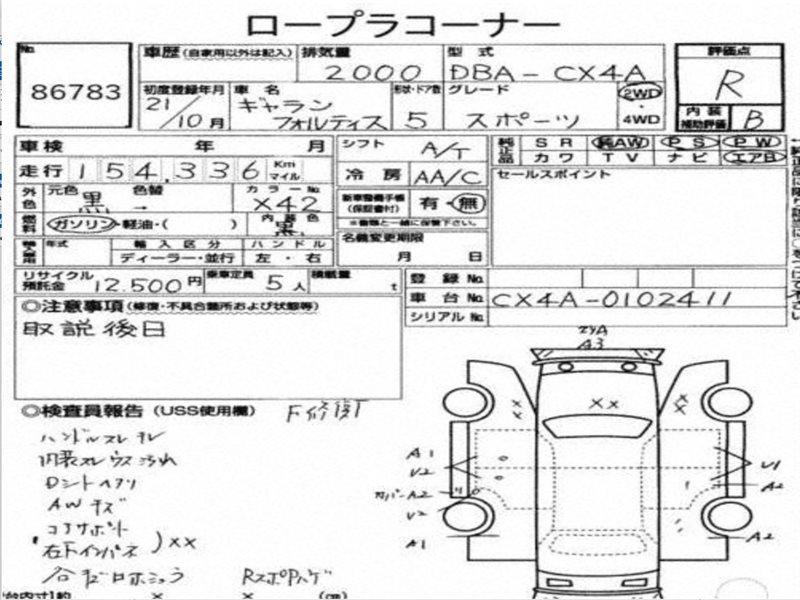 ロープラコーナー
No. 86783
車歴(自家用以外は記入) 排気量 2000 型式 DBA-CX4A
初度登録年月 21/10月 車名 ギャランフォルティス 形状・ドア数 5 グレード スポーツ 2WD・4WD
評価点 R
内装補助評価 B
車検 年 月 シフト A/T
純正品 SR 純AW PS PW
カワ TV ナビ エアB
走行 154,336 Km マイル 冷房 AA/C
セールスポイント
外色 元色 黒 色替 → カラーNo. X42
新車整備手帳(保証書付) 有・無
※書類と一緒に保管下さい。
燃料 ガソリン・軽油・( ) 内装色 黒
名義変更期限 月 日
輸入車用 年式 輸入区分 ディーラー・並行 ハンドル 左・右
リサイクル預託金 12,500円 乗車定員 5人 積載量 t
登録No.
車台No. CX4A-0102411
シリアルNo.
◎注意事項(修復・不具合箇所および状態等)
取説後日
◎検査員報告(USS使用欄)
ハンドルスレ キレ
内装スレ ウス汚れ
AWキズ
コアサポート
右ドインパネ )XX
A3
XX
A1
U2
カバーA2
U2
A1
U1
A2
A2
台内寸1約 × × (cm)